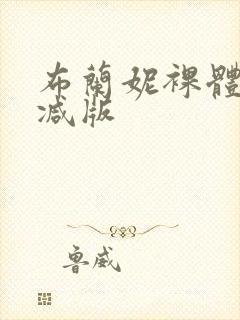 布蘭妮裸體
減版
魯威